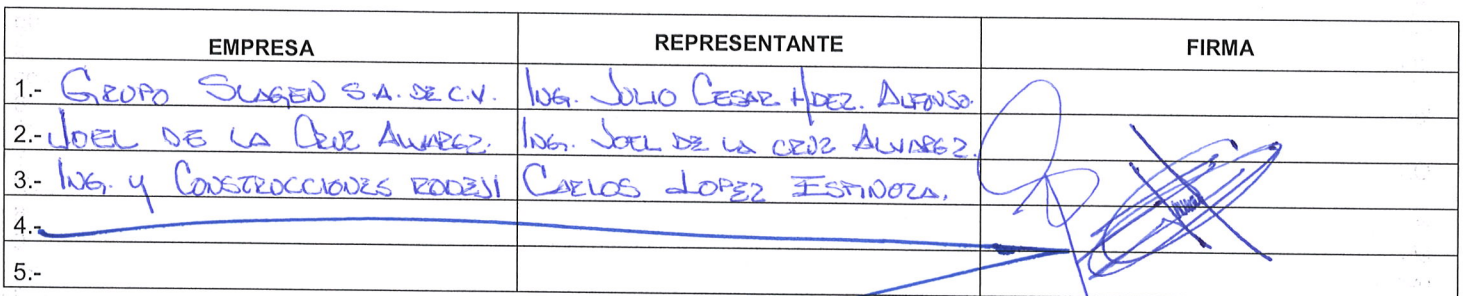 EMPRESA REPRESENTANTE FIRMA
1.- GRUPO SLAGEN S.A. DE C.V. ING. JULIO CESAR HDEZ. ALFONSO.
2.- JOEL DE LA CRUZ ALVAREZ. ING. JOEL DE LA CRUZ ALVAREZ.
3.- ING. Y CONSTRUCCIONES RODEJI CARLOS LOPEZ ESPINOZA.
4.-
5.-